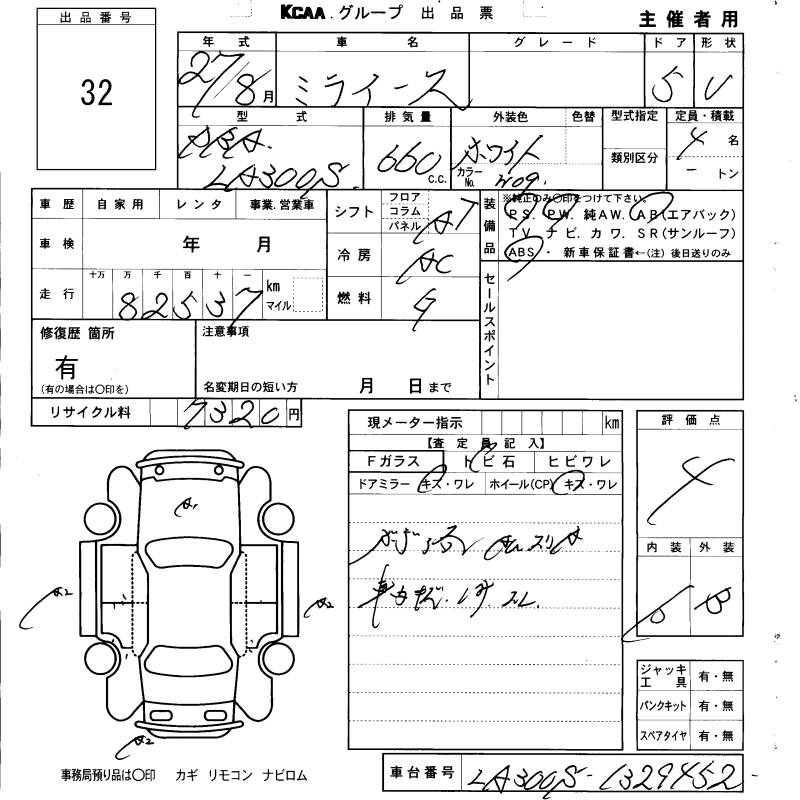 KCAA.グループ 出品票
主催者用
出品番号
32
年式 車名 グレード ドア 形状
27/8月 ミライース 5 V
型式 排気量 外装色 色替 型式指定 定員・積載
DBA-LA300S 660 C.C. ホワイト 類別区分 4名
カラーNo. W09 - トン
車歴 自家用 レンタ 事業.営業車
シフト フロア コラム パネル AT
装備品 ※純正のみ〇印をつけて下さい。
PS. PW. 純AW. AB(エアバック)
TV. ナビ. カワ. SR(サンルーフ)
ABS ・ 新車保証書←(注) 後日送りのみ
車検 年 月
冷房 AC
走行 十万 万 千 百 十 一 km マイル
82537
燃料 G
セールスポイント
修復歴 箇所
有
(有の場合は〇印を)
注意事項
名変期日の短い方 月 日まで
リサイクル料 7320円
現メーター指示 km
【査定員記入】
Fガラス トビ石 ヒビワレ
ドアミラー キズ・ワレ ホイール(CP) キズ・ワレ
評価点
4
内装 外装
B B
A1
A2
A2
A2
ジャッキ工具 有・無
パンクキット 有・無
スペアタイヤ 有・無
事務局預り品は〇印 カギ リモコン ナビロム
車台番号 LA300S-1329452-